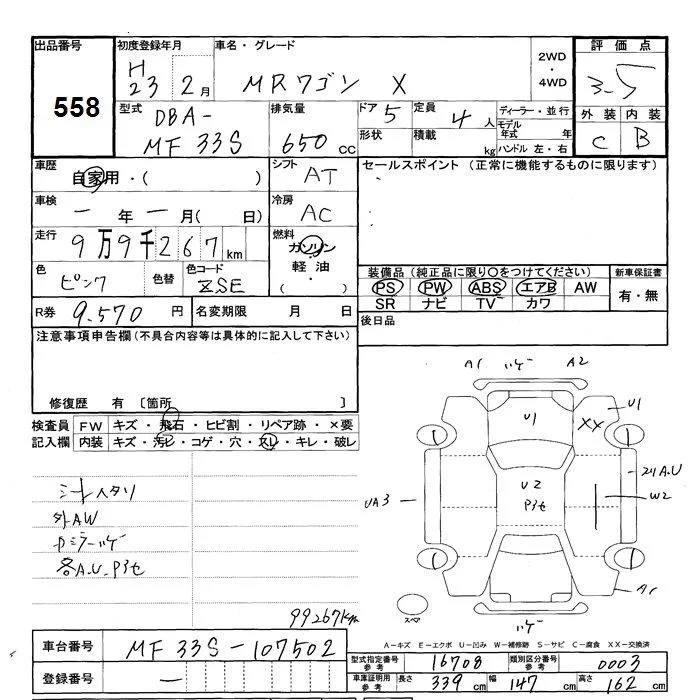 出品番号 初度登録年月 車名・グレード 2WD・4WD 評価点
558 H23 2月 MRワゴン X 3.5
型式 DBA-MF33S 排気量 650cc ドア 5 定員 4人 ディーラー・並行 外装 内装
形状 積載 kg モデル年式 年 ハンドル 左・右 C B
車歴 自家用・( ) シフト AT セールスポイント (正常に機能するものに限ります)
車検 一年一月( 日) 冷房 AC
走行 9万9千267km 燃料 ガソリン・軽油・( )
色 ピンク 色替 色コード ZSE 装備品(純正品に限り○をつけてください) 新車保証書
PS PW ABS エアB AW 有・無
SR ナビ TV カワ
R券 9.570円 名変期限 月 日 後日品
注意事項申告欄(不具合内容等は具体的に記入して下さい)
修復歴 有〔箇所 〕
検査員 FW キズ・飛石・ヒビ割・リペア跡・×要
記入欄 内装 キズ・汚レ・コゲ・穴・スレ・キレ・破レ
シートヘタリ
外AW
カミラーハゲ
各A.U.P3セ
99267km
A1 ハゲ A2
U1 XX U1
UA3 U2 P3セ 2リA.U
W2
A1
スペア ハゲ
A-キズ E-エクボ U-凹み W-補修跡 S-サビ C-腐食 XX-交換済
車台番号 MF33S-107502
型式指定番号 参考 16708 類別区分番号 参考 0003
登録番号 一
車庫証明用 参考 長さ 339cm 幅 147cm 高さ 162cm